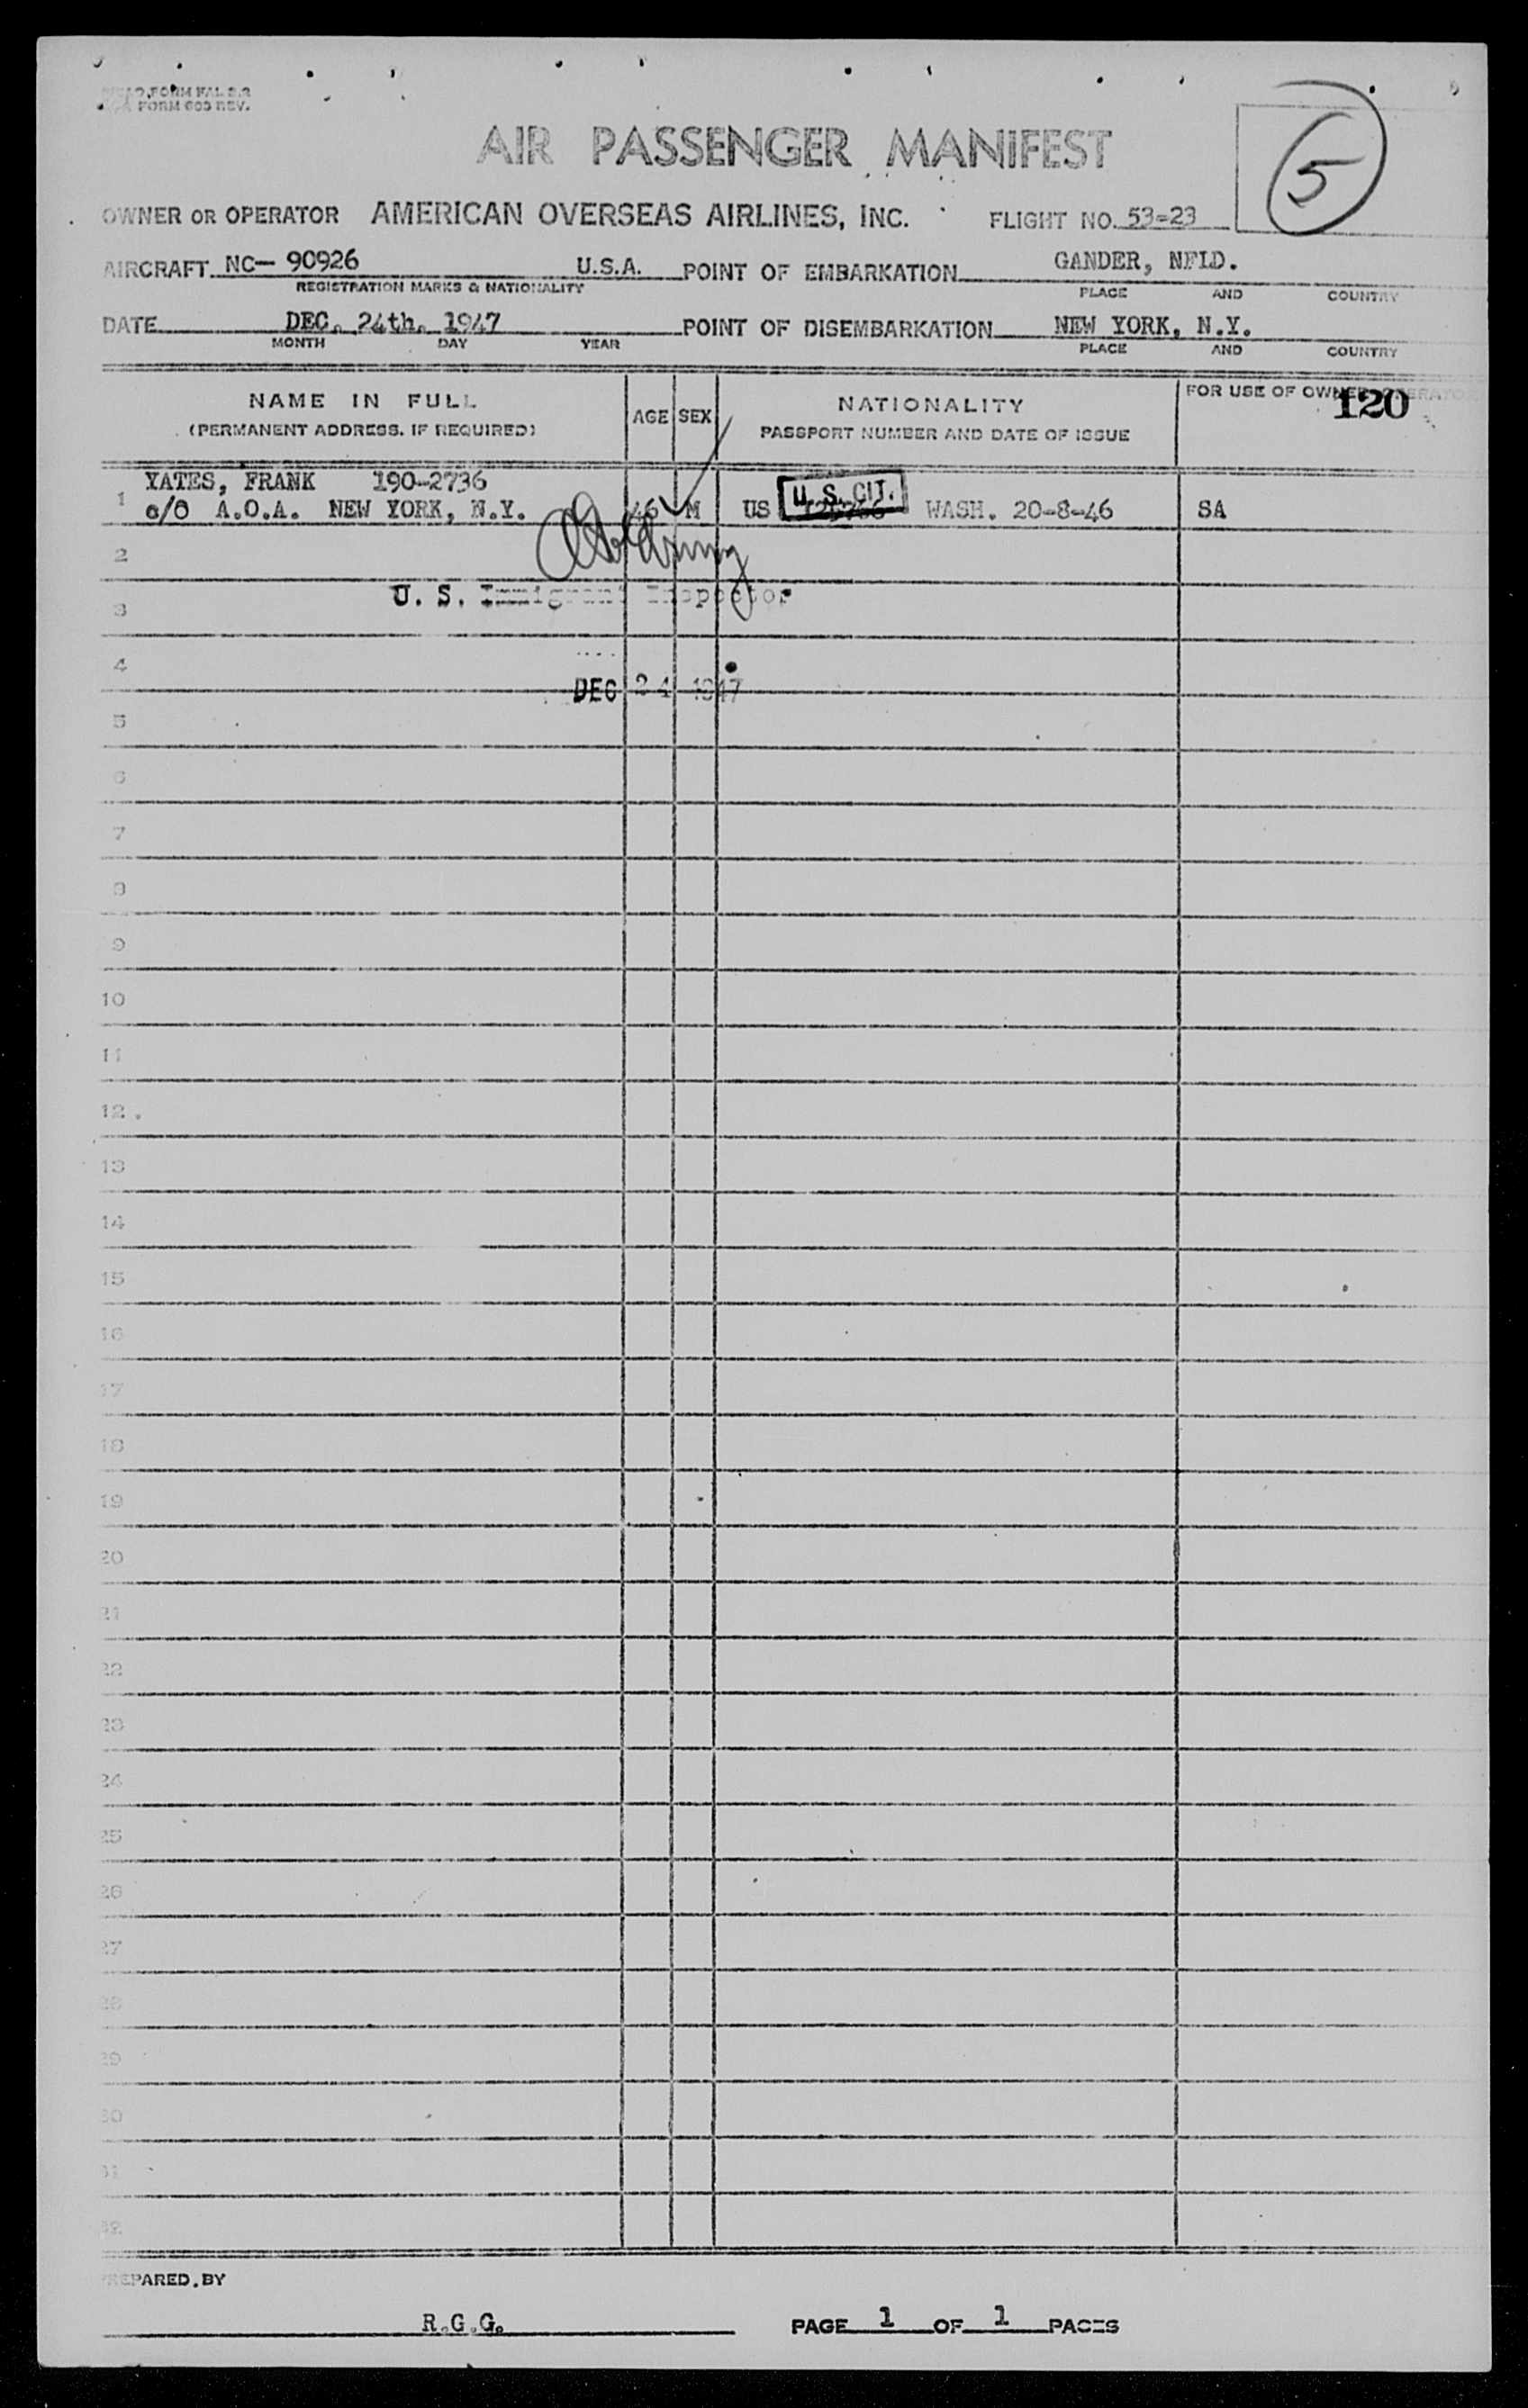 FORM FAL 2.2
FORM 603 REV.
AIR PASSENGER MANIFEST
5
OWNER OR OPERATOR AMERICAN OVERSEAS AIRLINES, INC. FLIGHT NO. 53-23
AIRCRAFT NC- 90926 U.S.A. POINT OF EMBARKATION GANDER, NFLD.
REGISTRATION MARKS & NATIONALITY PLACE AND COUNTRY
DATE DEC. 24th. 1947 POINT OF DISEMBARKATION NEW YORK, N.Y.
MONTH DAY YEAR PLACE AND COUNTRY
NAME IN FULL AGE SEX NATIONALITY FOR USE OF OWNER OPERATOR
(PERMANENT ADDRESS. IF REQUIRED) PASSPORT NUMBER AND DATE OF ISSUE 120
YATES, FRANK 190-2736
1 c/o A.O.A. NEW YORK, N.Y. 46 M US U.S. CIT. WASH. 20-8-46 SA
2
U. S. Immigrant Inspector
3
4
DEC 24 1947
5
6
7
8
9
10
11
12
13
14
15
16
17
18
19
20
21
22
23
24
25
26
27
28
29
30
31
32
PREPARED BY
R.G.G. PAGE 1 OF 1 PAGES